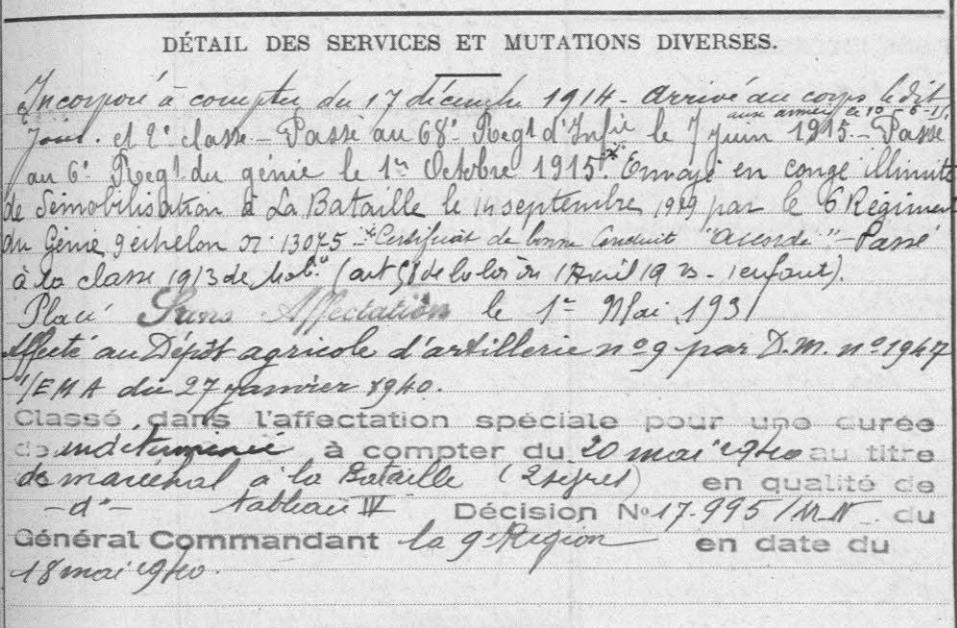 DÉTAIL DES SERVICES ET MUTATIONS DIVERSES.
Incorporé à compter du 17 décembre 1914 - Arrivé au corps le dit
aux armées le 10-6-15
Jour. et 2e classe - Passé au 68e Regt d'Infie le 7 Juin 1915. - Passé
au 6e Regt du génie le 1er Octobre 1915.* Envoyé en congé illimité
de démobilisation à La Bataille le 14 septembre 1919 par le 6 Régiment
du Génie 9 échelon no 13075 - *Certificat de bonne Conduit "Accordé" - Passé
à la classe 1913 de Mobon (art 58 de la loi du 1 Avril 1923 - 1 enfant).
Placé Sans Affectation le 1er Mai 1931
Affecté au Dépôt agricole d'artillerie no 9 par D.M. no 1947
1/EMA du 27 janvier 1940.
Classé dans l'affectation spéciale pour une durée
de indéterminée à compter du 20 mai 1940 au titre
de maréchal à la Bataille (2 Sèvres) en qualité de
-do- tableau IV Décision No 17.995/ du
Général Commandant la 9e Région en date du
18 mai 1940.